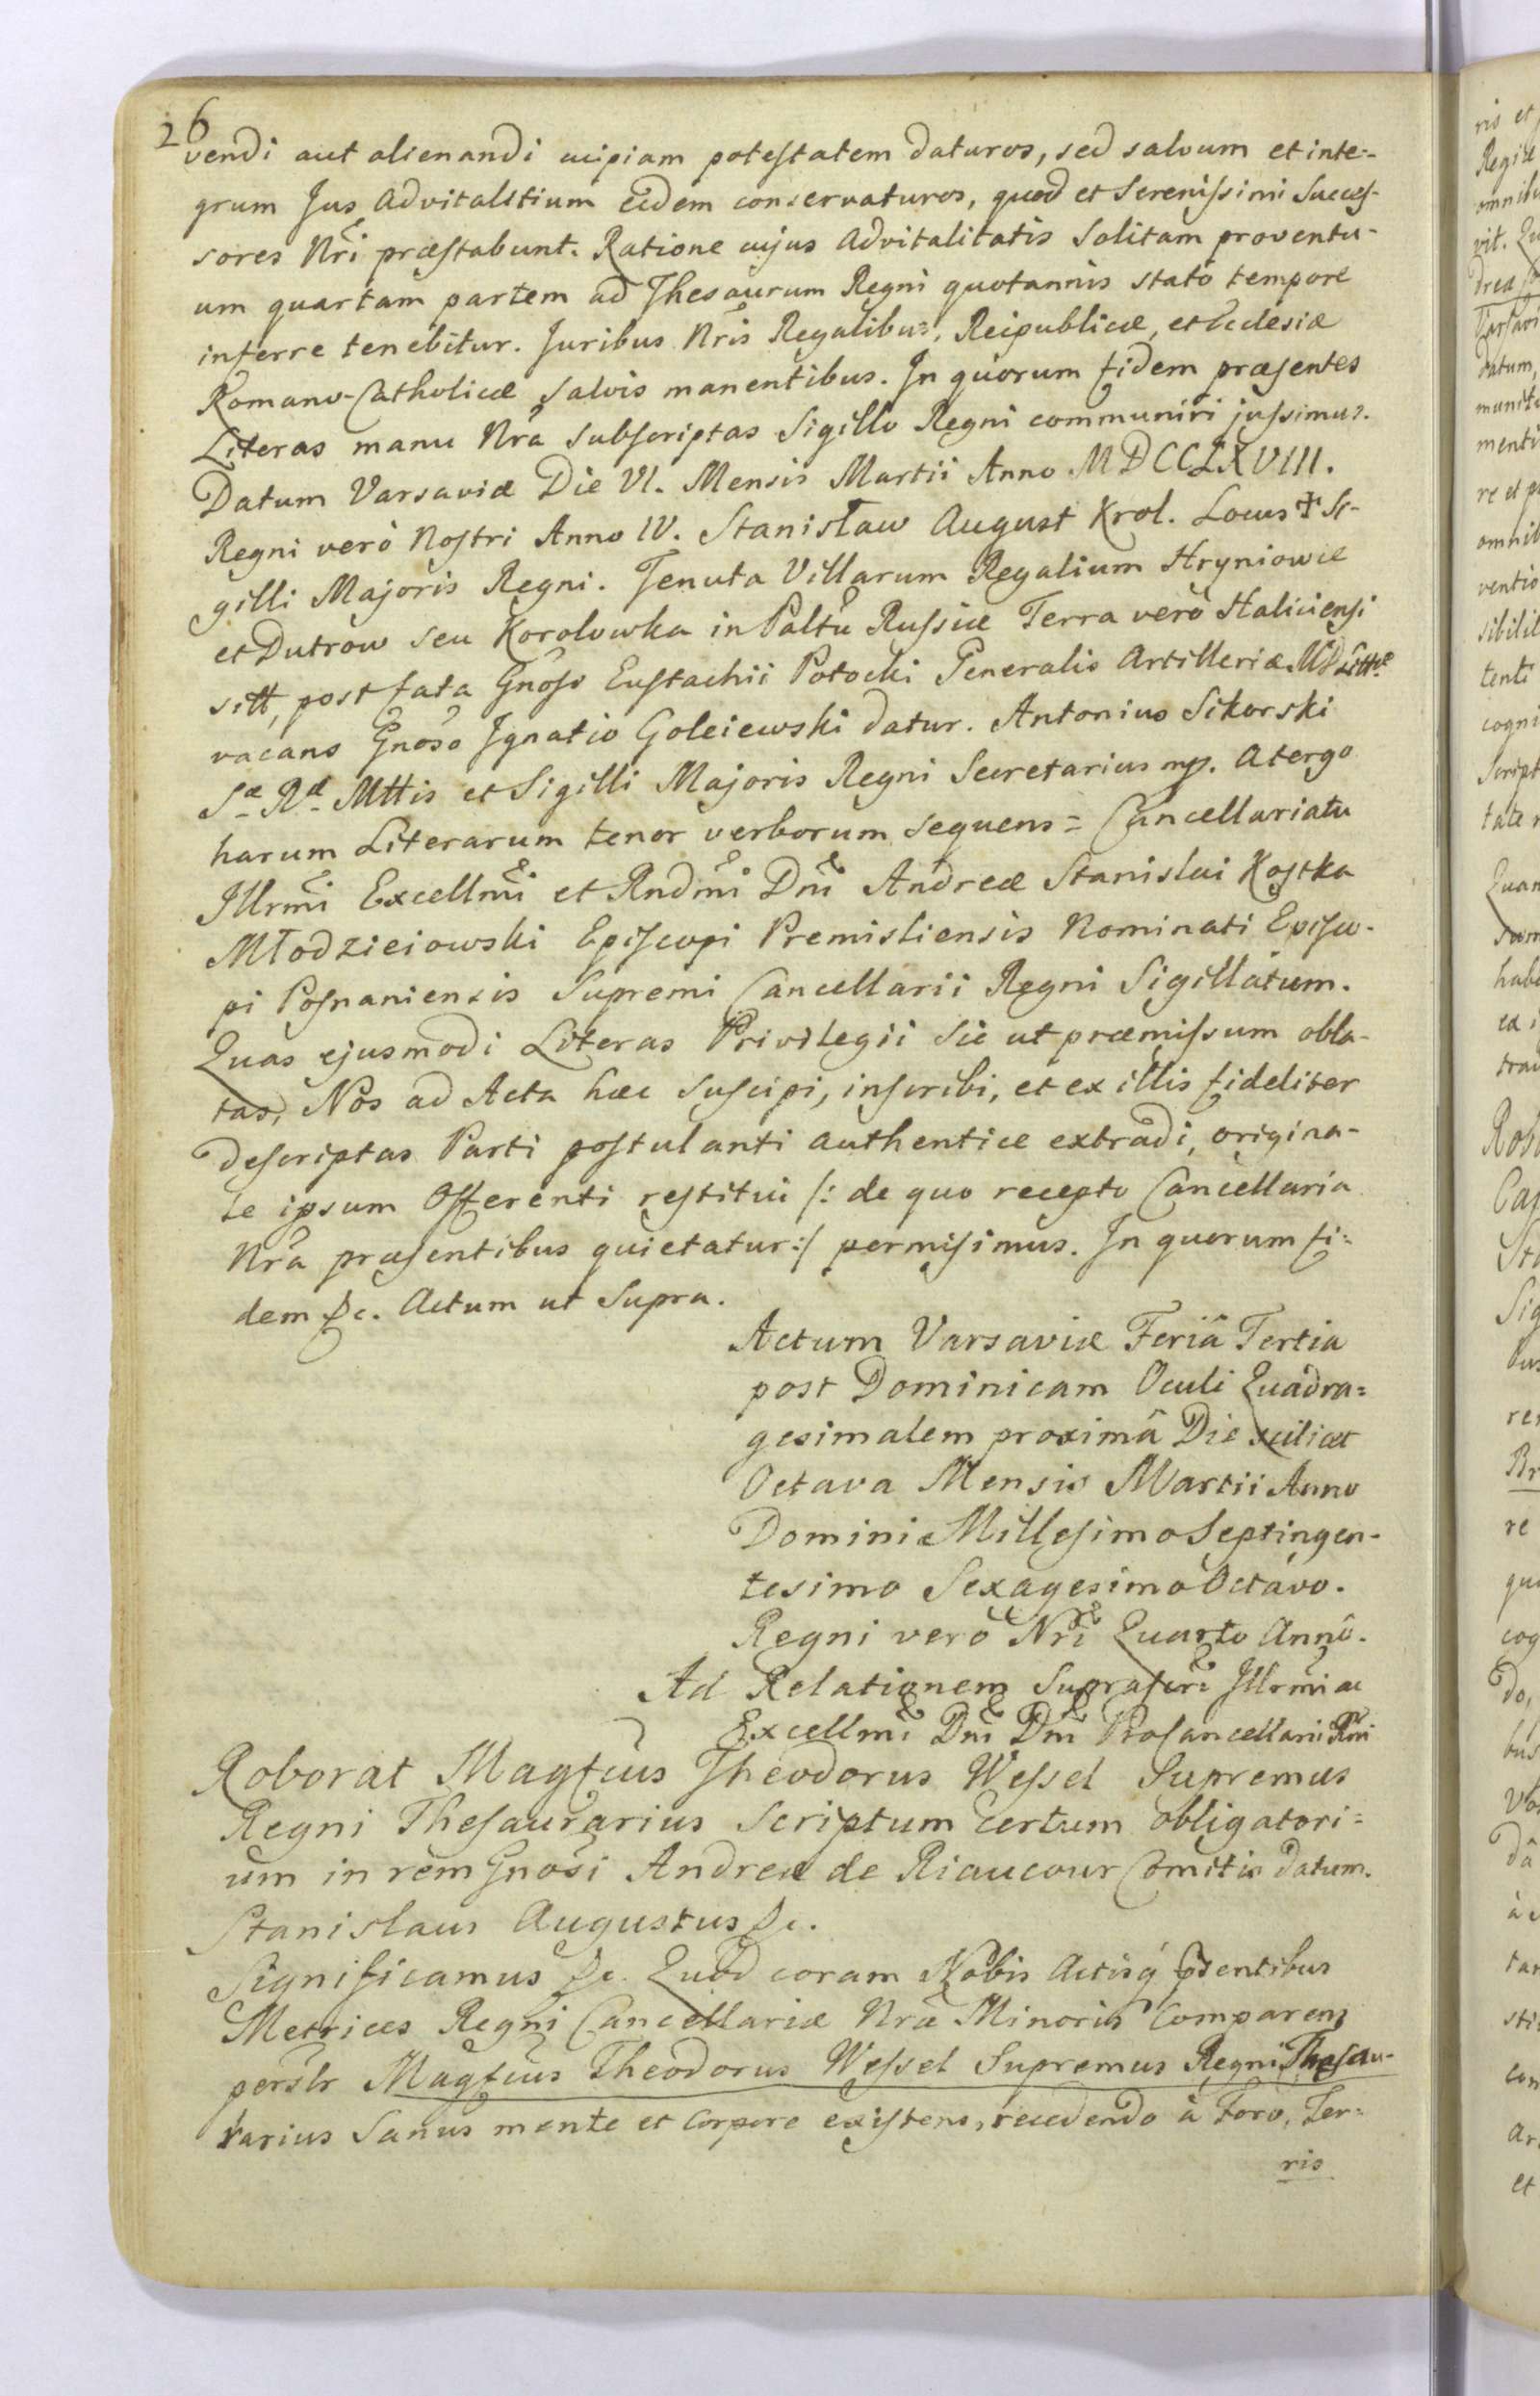 26
vendi aut alienandi cuipiam potestatem daturos, sed salvum et inte-
grum Jus Advitalitium eidem conservaturos, quod et Serenissimi Succes-
sores Nri præstabunt. Ratione cujus Advitalitatis Solitam proventu-
um quartam partem ad Thesaurum Regni quotannis stato tempore
inferre tenebitur. Juribus Nris Regalibus, Reipublicæ, et Ecclesiæ
Romano-Catholicæ salvis manentibus. In quorum fidem præsentes
Literas manu Nrâ Subscriptas Sigillo Regni communiri jussimus.
Datum Varsaviæ Die VI. Mensis Martii Anno MDCCLXVIII.
Regni verò Nostri Anno IV. Stanisław August Krol. Locus ✝ Si-
gilli Majoris Regni. Tenuta Villarum Regalium Hryniowce
et Dutrow seu Korolowka in Paltu Russiæ Terra verò Haliciensi
sitt, post fata Gnosi Eustachii Potocki Generalis Artilleriæ MD Littæ
vacans Gnoso Ignatio Goleiewski datur. Antonius Sikorski
Sæ Ræ Mttis et Sigilli Majoris Regni Secretarius mp. Atergo
harum Literarum tenor verborum sequens = Cancellariatu
Illrmi Excellmi et Rndmi Dni Andreæ Stanislai Kostka
Młodzieiowski Episcopi Premisliensis Nominati Episco-
pi Posnaniensis Supremi Cancellarii Regni Sigillatum.
Quas ejusmodi Literas Privilegii Sic ut præmissum obla-
tas, Nos ad Acta hæc suscipi, inscribi, et ex illis fideliter
descriptas Parti postulanti authentice extradi, origina-
le ipsum Offerenti restitui /: de quo recepto Cancellaria
Nrâ præsentibus quietatur :/ permisimus. In quorum fi-
dem &c. Actum ut Supra.
Actum Varsaviæ Feriâ Tertia
post Dominicam Oculi Quadra=
gesimalem proximâ Die scilicet
Octava Mensis Martii Anno
Domini Millesimo Septingen-
tesimo Sexagesimo Octavo.
Regni verò Nri Quarto Annô.
Ad Relationem Suprascri Illrmi ac
Excellmi Dni Dni ProCancellarii Rni
Roborat Magfcus Theodorus Wessel Supremus
Regni Thesaurarius Scriptum Certum obligatori=
um in rem Gnosi Andreæ de Riaucour Comitis datum.
Stanislaus Augustus &c.
Significamus &c. Quod coram Nobis Actisq́ pñsentibus
Metrices Regni Cancellariæ Nræ Minoris Comparens
perslr Magfcus Theodorus Wessel Supremus Regni Thesau-
rarius Sanus mente et Corpore existens, recedendo à Foro, Ter=
ris